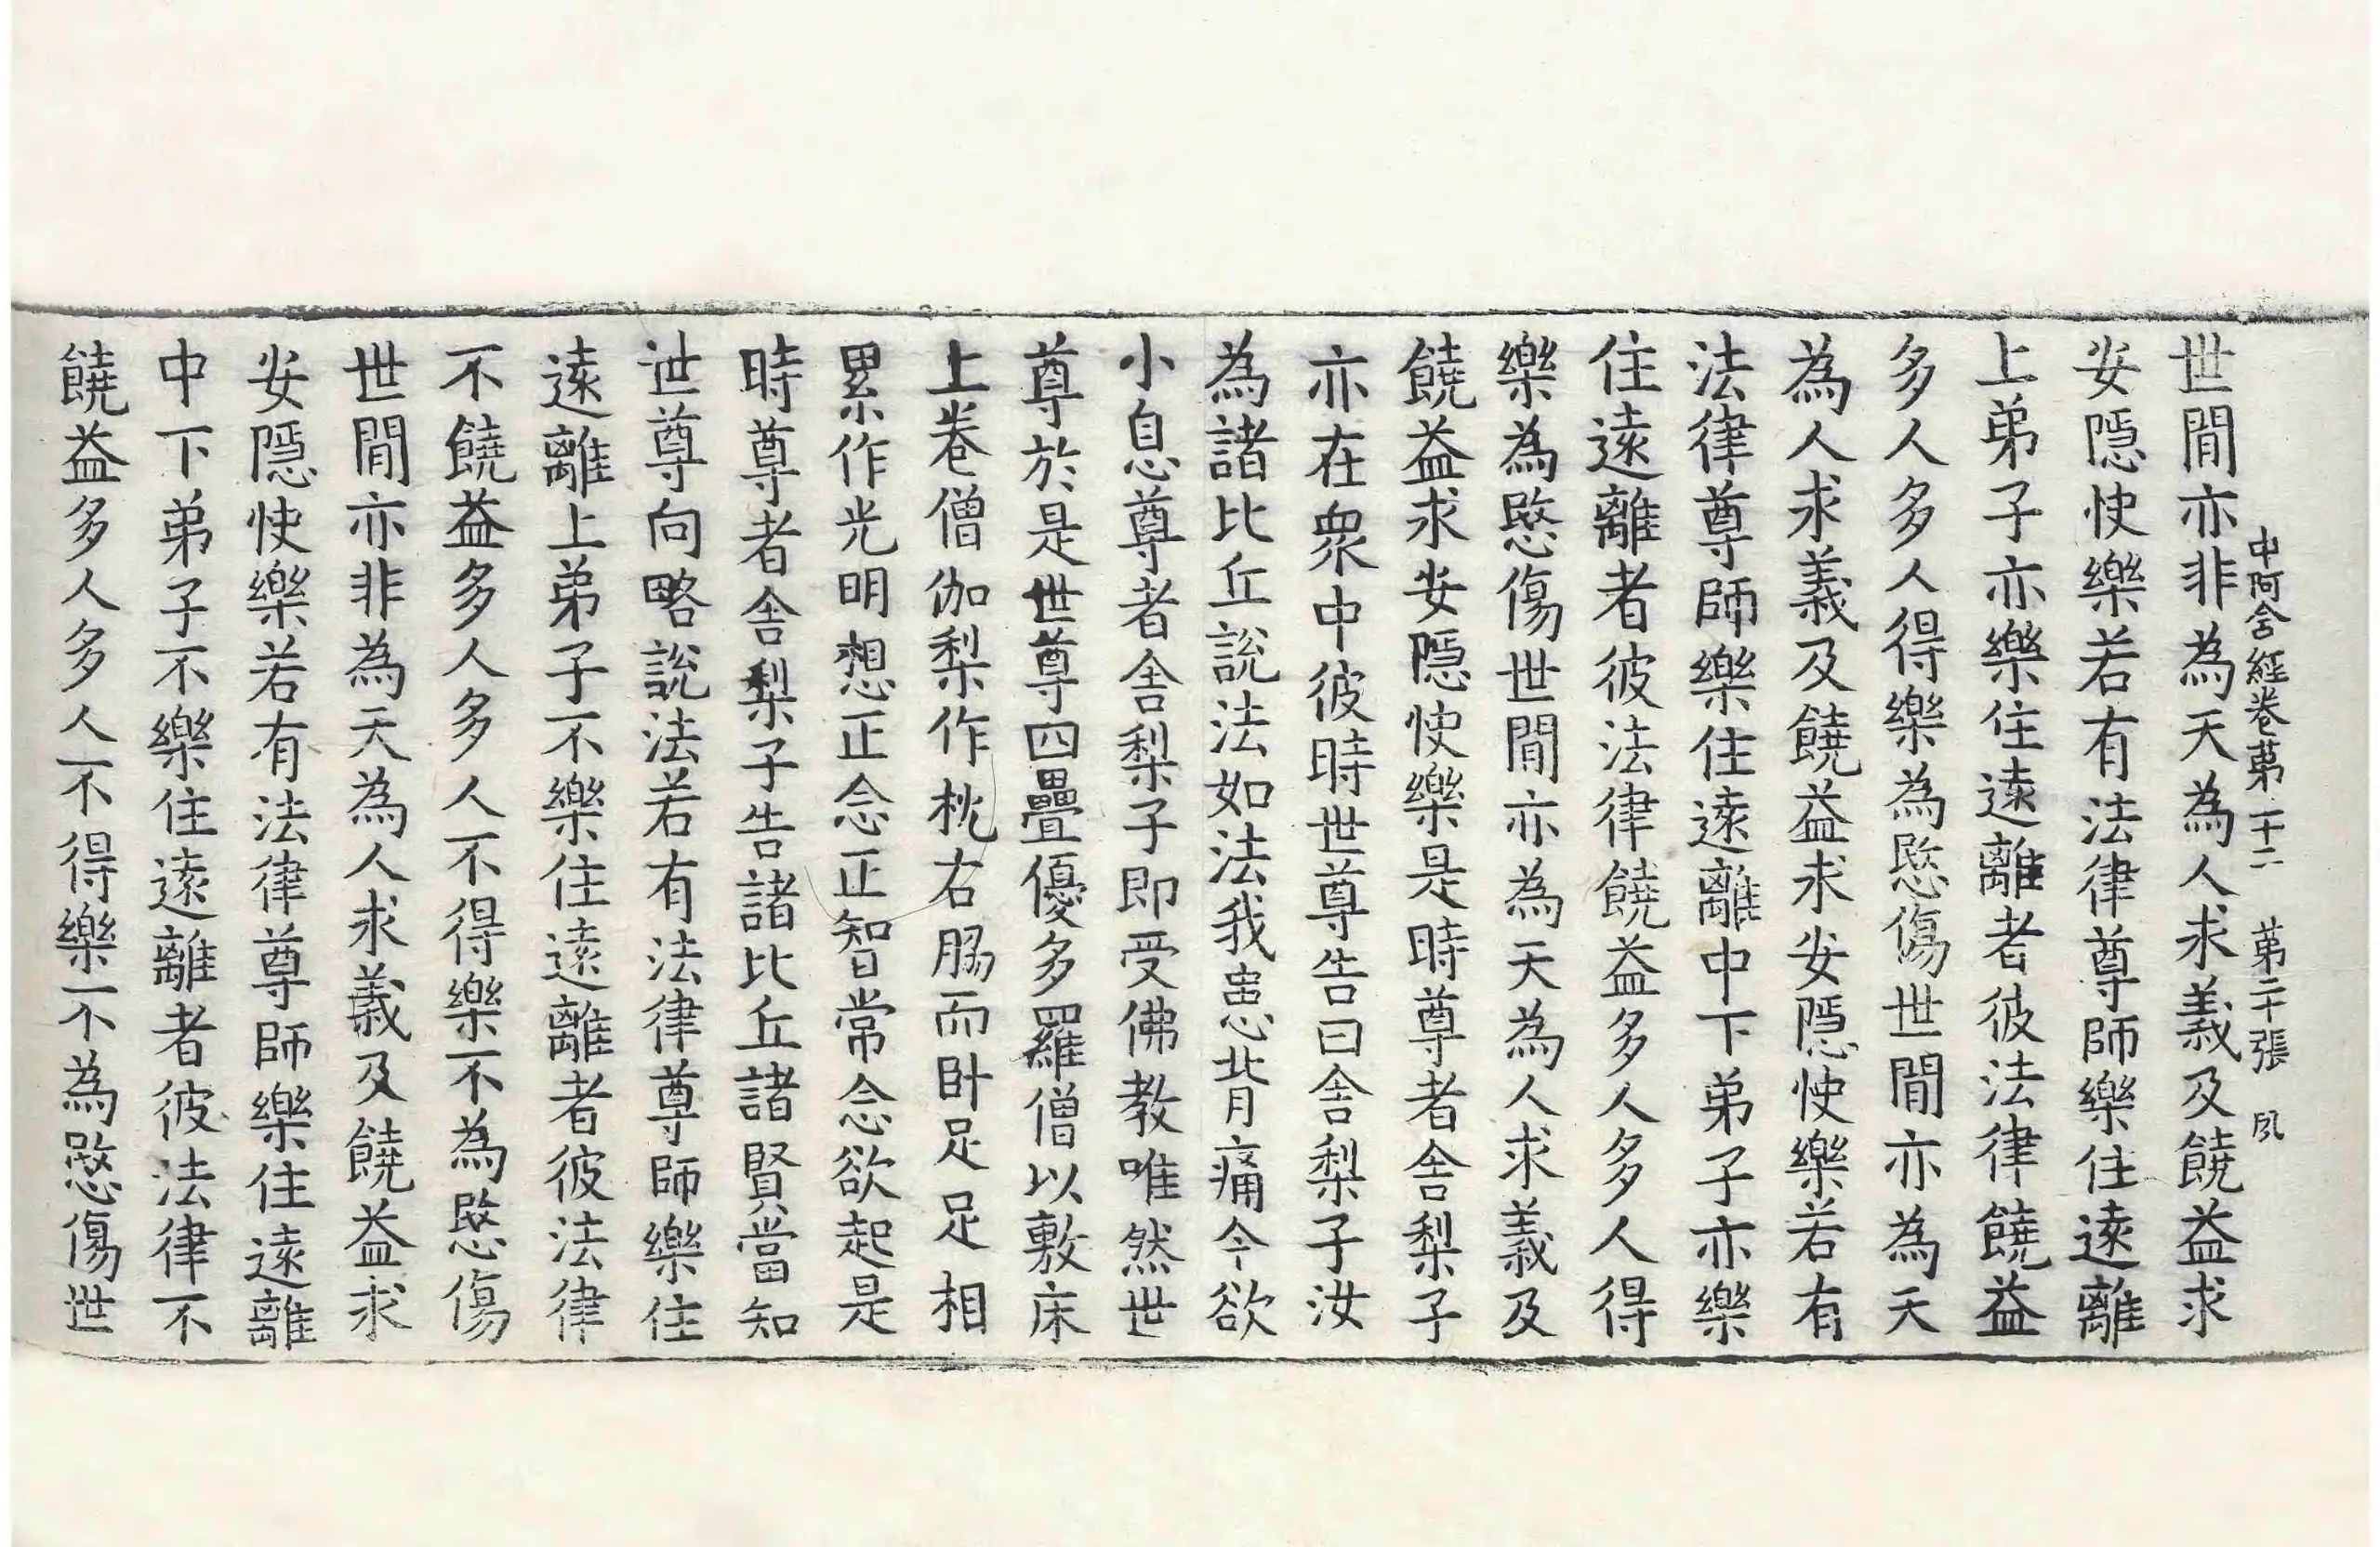 中阿含經卷第二十二　第二十張　夙
世間亦非為天為人求義及饒益求
安隱快樂若有法律尊師樂住遠離
上弟子亦樂住遠離者彼法律饒益
多人多人得樂為愍傷世間亦為天
為人求義及饒益求安隱快樂若有
法律尊師樂住遠離中下弟子亦樂
住遠離者彼法律饒益多人多人得
樂為愍傷世間亦為天為人求義及
饒益求安隱快樂是時尊者舍梨子
亦在衆中彼時世尊告曰舍梨子汝
為諸比丘說法如法我患背痛今欲
小息尊者舍梨子即受佛教唯然世
尊於是世尊四疊優多羅僧以敷床
上卷僧伽梨作枕右脇而臥足足相
累作光明想正念正智常念欲起是
時尊者舍梨子告諸比丘諸賢當知
世尊向略說法若有法律尊師樂住
遠離上弟子不樂住遠離者彼法律
不饒益多人多人不得樂不為愍傷
世間亦非為天為人求義及饒益求
安隱快樂若有法律尊師樂住遠離
中下弟子不樂住遠離者彼法律不
饒益多人多人不得樂不為愍傷世